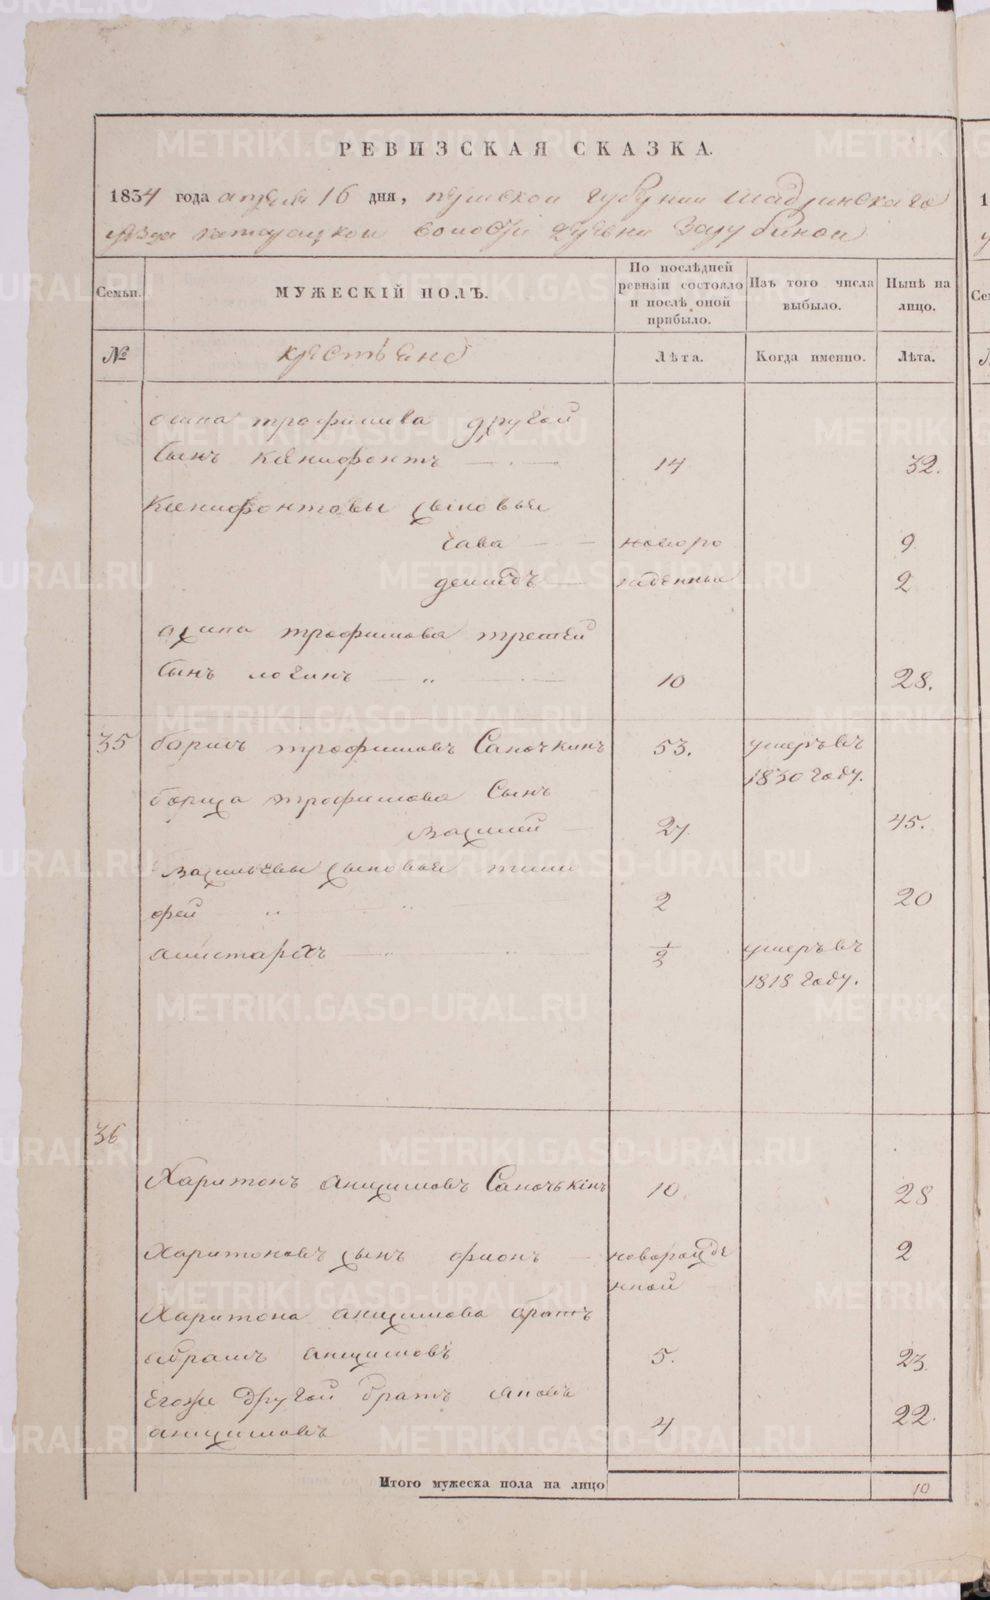 РЕВИЗСКАЯ СКАЗКА.
1834 года апреля 16 дня, пермской губернии шадринскаго
уезда волости деревни Зарубиной
Семьи. МУЖЕСКІЙ ПОЛЪ. По послѣдней ревизіи состояло и послѣ оной прибыло. Изъ того числа выбыло. Нынѣ на лицо.
№ крестьяне Лѣта. Когда именно. Лѣта.
осипа трофимова другой
сынъ ксенифонтъ 14 32.
Ксенифонтовы сыновья
сава новоро 9
демидъ жденные 2
осипа трофимова третей
сынъ логинъ 10 28.
35 борисъ трофимовъ Саночкинъ 53. умеръ въ
1830 году.
бориса трофимова сынъ
василей 27 45.
васильевы сыновья тимо
фей 2 20
аристархъ 1/2 умеръ въ
1818 году.
36
Харитонъ анисимовъ Саночькінъ 10 28
Харитоновъ сынъ фионъ новорожде 2
нной
Харитона анисимова братъ
абрамъ анисимовъ 5. 23
Егоже другой братъ яковъ
анисимовъ 4 22.
Итого мужеска пола на лицо 10
METRIKI.GASO-URAL.RU